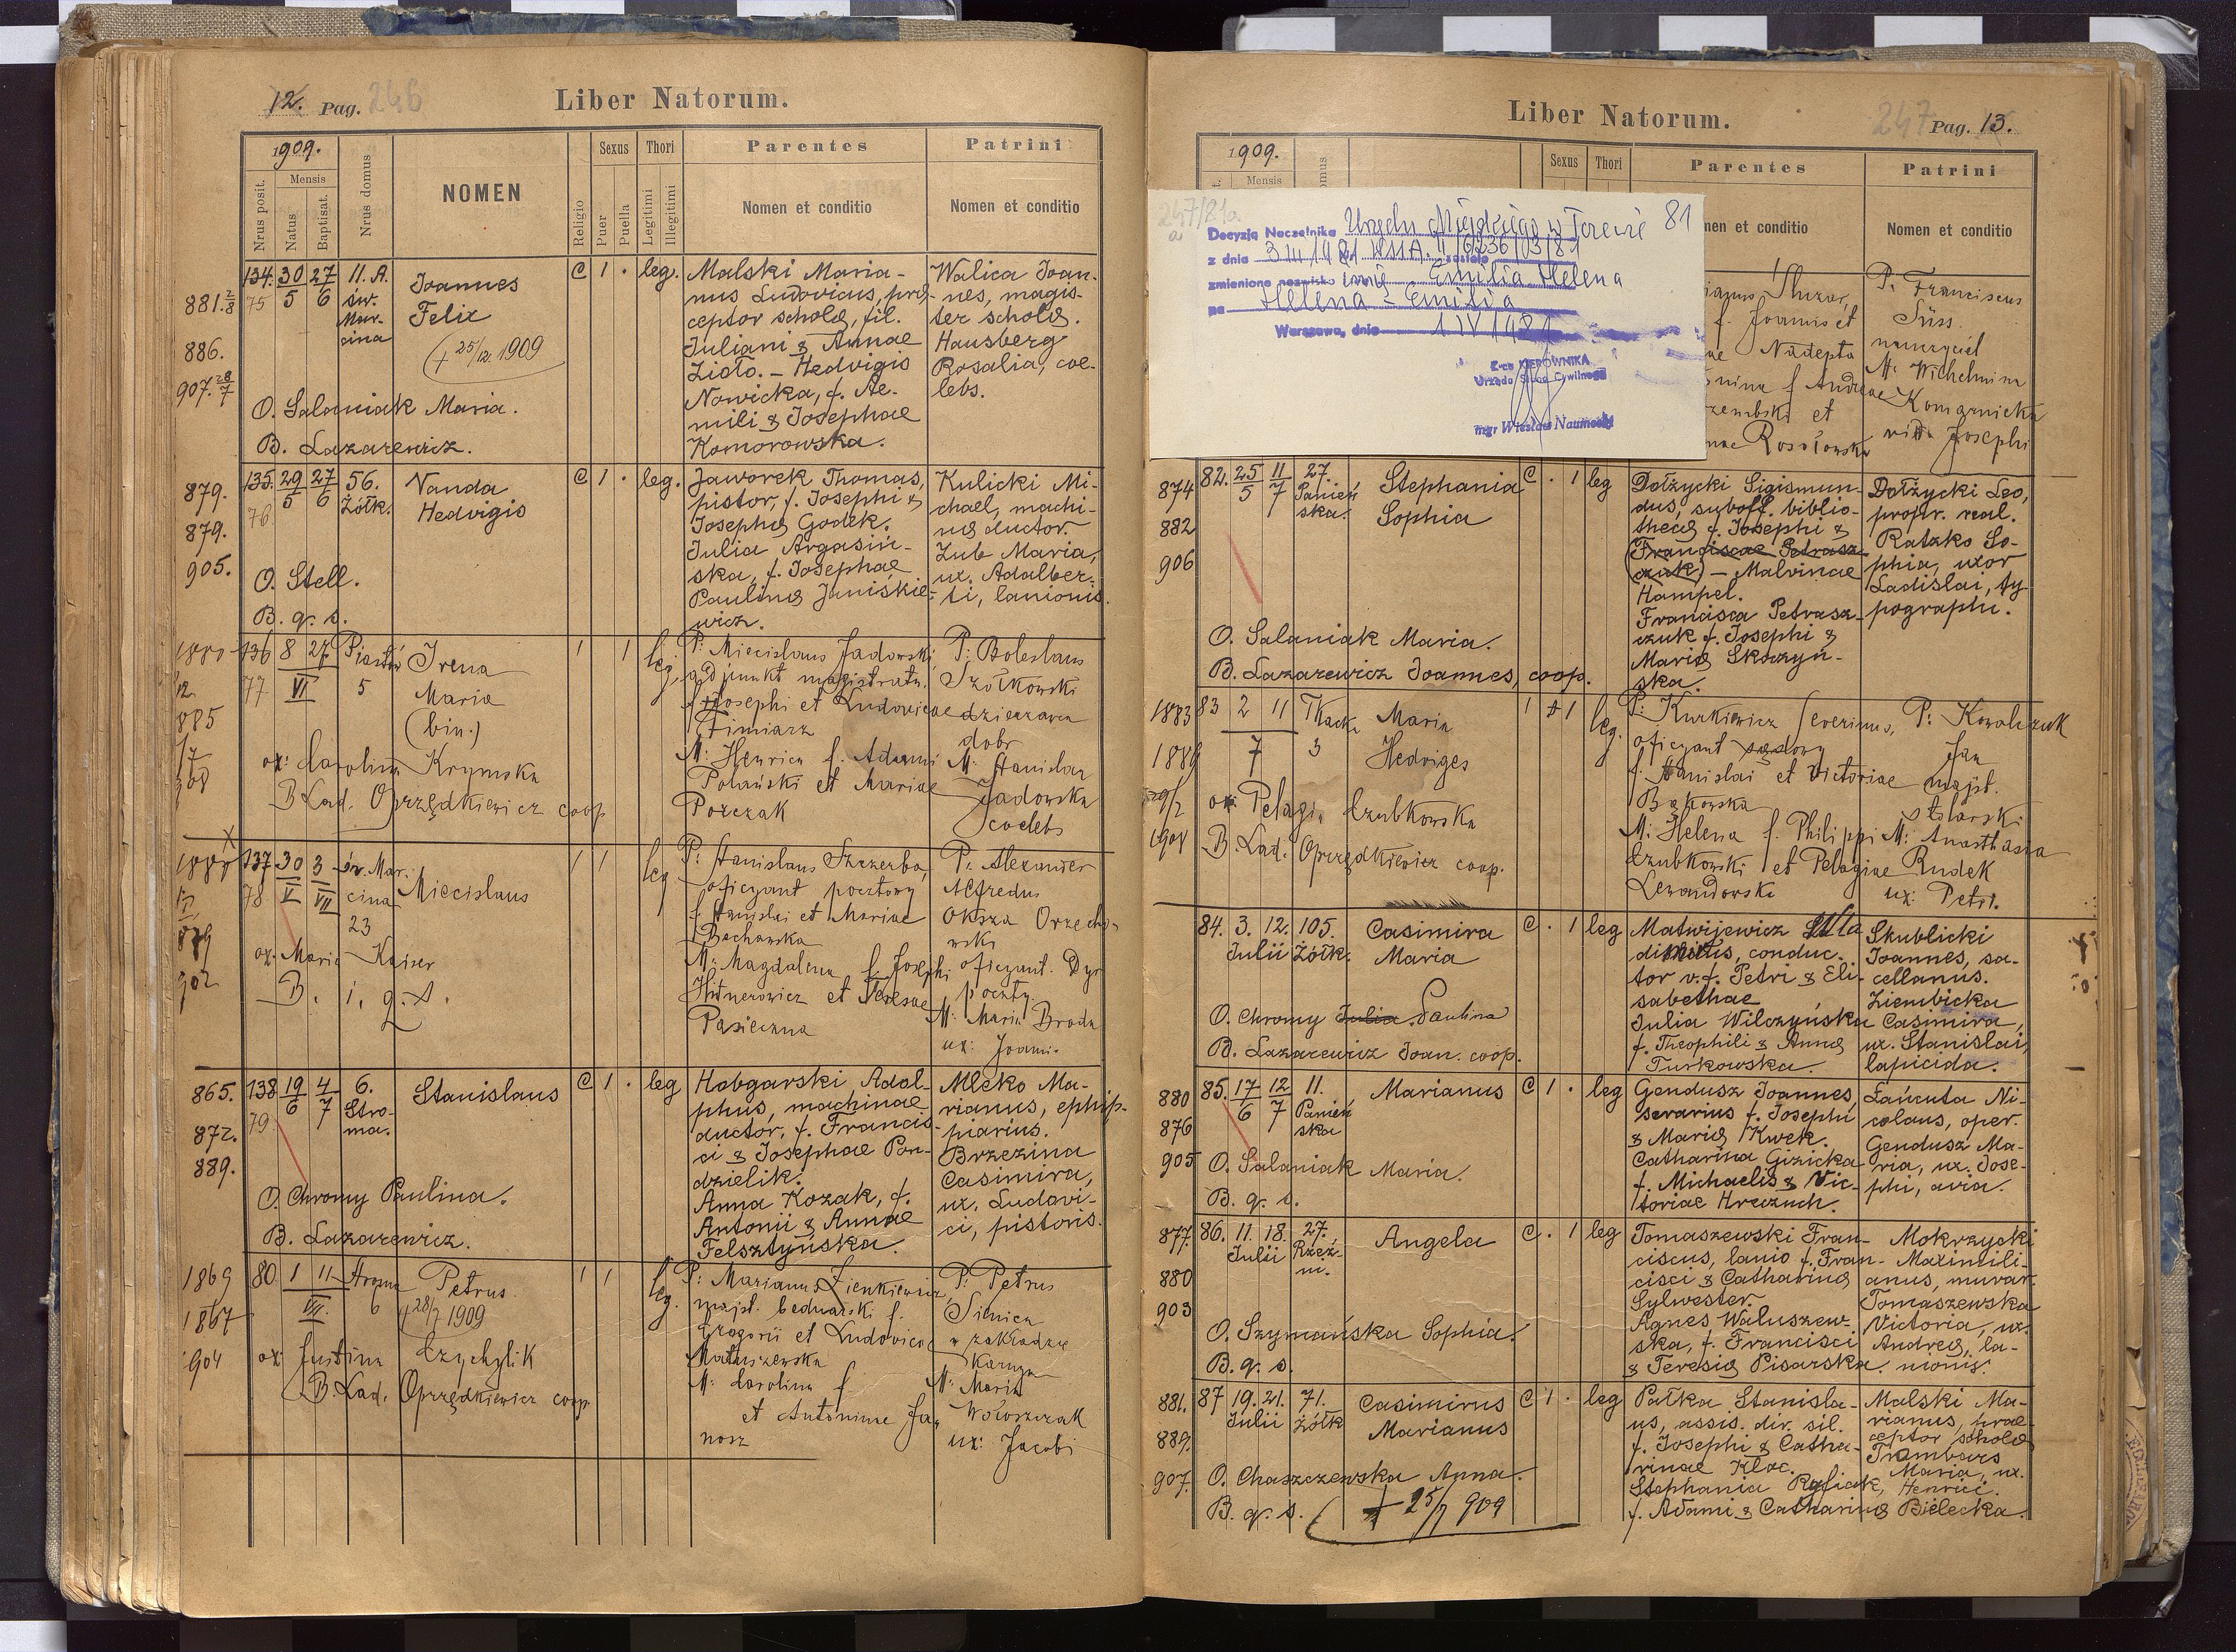 12. Pag. 246
Liber Natorum.
1909.
Mensis
Nrus posit.
Natus
Baptisat.
Nrus domus
NOMEN
Religio
Sexus
Puer
Puella
Thori
Legitimi
Illegitimi
Parentes
Nomen et conditio
Patrini
Nomen et conditio
881.
886.
907.
134. 30/5 27/6 11. A.
75
św.
Mar-
cina
Joannes
Felix
(+ 25/12. 1909
C 1 . leg.
O. Salaniak Maria.
B. Lazarewicz.
Malski Maria-
nus Ludovicus, prae-
ceptor scholae, fil.
Juliani & Annae
Zioło. – Hedvigis
Nowicka, f. Ae-
mili & Josephae
Komorowska.
Walica Joan-
nes, magis-
ter scholae.
Hausberg
Rosalia, coe-
lebs.
879.
879.
905.
135. 29/5 27/6 56.
76
Żółk.
Vanda
Hedvigis
C 1 . leg.
O. Stell.
B. q. s.
Jaworek Thomas,
pistor, f. Josephi &
Josepha Godek.
Julia Argasiń-
ska, f. Josephae
Paulina Juniśkie-
wicz.
Kulicki Mi-
chael, machi-
nae ductor.
Zub Maria,
ux. Adalber-
ti, lanionis.
885
136 8 27 Piastów
77 VI 5
Irena
Maria
(bin.)
1 1 leg.
ox: Carolina Krymska
B Lad. Oprzędkiewicz coop
P: Miecislaus Jadowski
adjunkt magistratu,
f. Josephi et Ludovicae
Fimiarz
M: Henrica f. Adami
Polański et Mariae
Porczak
P: Boleslaus
Szółkowski
dzierżawca
dobr
M: Stanislaa
Jadowska
coelebs
879
902
137 30 3 św. Mar-
78 V VII cina
23
Miecislaus
1 1 leg
ox. Maria Kaiser
B. i. q. s.
P: Stanislaus Szczerba,
oficyant pocztowy
f. Stanislai et Mariae
Bochawska
M: Magdalena f. Josephi
et Teresae
Pasieczna
P: Alexander
Alfredus
Oksza Orzecho-
wski
oficyant. Dyr
poczty.
M: Maria Broda
ux: Joannis
865.
872.
889.
138 19/6 4/7 6.
79
Stro-
ma.
Stanislaus
C 1 . leg
O. Chromy Paulina.
B. Lazarewicz.
Hobgarski Adol-
phus, machinae
ductor, f. Francis-
ci & Josephae Pon-
dzielik.
Anna Kozak, f.
Antonii & Annae
Felsztyńska.
Mleko Ma-
rianus, ephip-
piarius.
Brzezina
Casimira,
ux. Ludovi-
ci, pistoris.
1869
1867
904
80 1 11 Stroma
VII. 6
Petrus
+ 28/7 1909
1 1 leg.
ox: Justina Czychylik
B. Lad. Oprzędkiewicz coop
P: Marianus Zienkiewicz,
majst. bednarski f.
Gregorii et Ludovicae
Matuszewska
M: Carolina f.
et Antoninae Ja-
nosz
P: Petrus
Sienica
w zakładzie
M: Maria
Wołoszczak
ux: Jacobi
Liber Natorum.
247 Pag. 13.
1909.
Mensis
Sexus
Thori
Parentes
Nomen et conditio
Patrini
Nomen et conditio
247/81a
Decyzją Naczelnika Urzędu Miejskiego w Terenie 81
z dnia 3 III 1981 zostało
zmienione nazwisko imię Emilia Helena
na Helena - Emilia
Warszawa, dnia 1 IV 1981
Z-ca KIEROWNIKA
Urzędu Stanu Cywilnego
mgr Wiesław Naumoski
f. Joannis et
Nadepta
f. Andreae
et
Rosołowska
P: Franciscus
Süss.
nauczyciel
M: Wilhelmina
Komarnicka
vid. Josephi
874
882
906
82. 25/5 11/7 27.
Panień-
ska.
Stephania
Sophia
C . 1 leg
O. Salaniak Maria.
B. Lazarewicz Joannes, coop.
Dołżycki Sigismun-
dus, suboff. biblio-
thecae f. Josephi &
(Franciscae Petrasz-
czuk) – Malvinae
Hampel.
Francisca Petrasz-
czuk f. Josephi &
Maria Skoczyń-
ska.
Dołżycki Leo,
propr. real.
Ratzko So-
phia, uxor
Ladislai, ty-
pographi.
1883
83 2 11 Tkacka
7 3
Maria
Hedviges
leg.
ox: Pelagia Czubkowska
B. Lad. Oprzędkiewicz coop.
P: Kurkiewicz Severinus,
oficyant sądowy
f. Stanislai et Victoriae
Bąkowska
M: Helena f. Philippi
Czubkowski et Pelagiae
Lewandowska
P: Kowalczuk
Jan
majst.
stolarski
M: Anasthasia
Rudek
ux: Petri.
84. 3. 12. 105.
Julii Żółk.
Casimira
Maria
C . 1 leg
O. Chromy Julia Paulina
B. Lazarewicz Joan. coop.
Matwijewicz Wla
dimirus, conduc-
tor v. f. Petri & Eli-
sabethae
Julia Wilczyńska
f. Theophili & Anna
Turkowska.
Skublicki
Joannes, sa-
cellanus.
Ziembicka
Casimira,
ux. Stanislai,
lapicida.
880
876
905
85. 17/6 12/7 11.
Panień-
ska
Marianus
C 1 . leg
O. Salaniak Maria.
B. q. s.
Gendusz Joannes,
serarius f. Josephi
& Maria Kwek.
Catharina Gizicka
f. Michaelis & Vic-
toriae Hreczuch.
Łańcuta Ni-
colaus, oper.
Gendusz Ma-
ria, ux. Jose-
phi, avia.
877.
880
903
86. 11. 18. 27.
Julii Rzeź-
ni.
Angela
C . 1 leg
O. Szymańska Sophia.
B. q. s.
Tomaszewski Fran-
ciscus, lanio f. Fran-
cisci & Catharina
Sylwester.
Agnes Waluszew-
ska, f. Francisci
& Teresia Pisarska.
Mokrzycki
Maximili-
anus, murar.
Tomaszewska
Victoria, ux.
Andreae, la-
nionis.
881.
889.
907.
87 19. 21. 71.
Julii Żółk
Casimirus
Marianus
C 1 . leg
O. Chaszczewska Anna.
B. q. s. + 25/7 909
Pałka Stanisla-
us, assis. dir. sil.
f. Josephi & Catha-
rinae Kloc.
Stephania Rysiak,
f. Adami & Catharina Bielecka.
Malski Ma-
rianus, prae-
ceptor scholae
Trambars
Maria, ux.
Henrici.